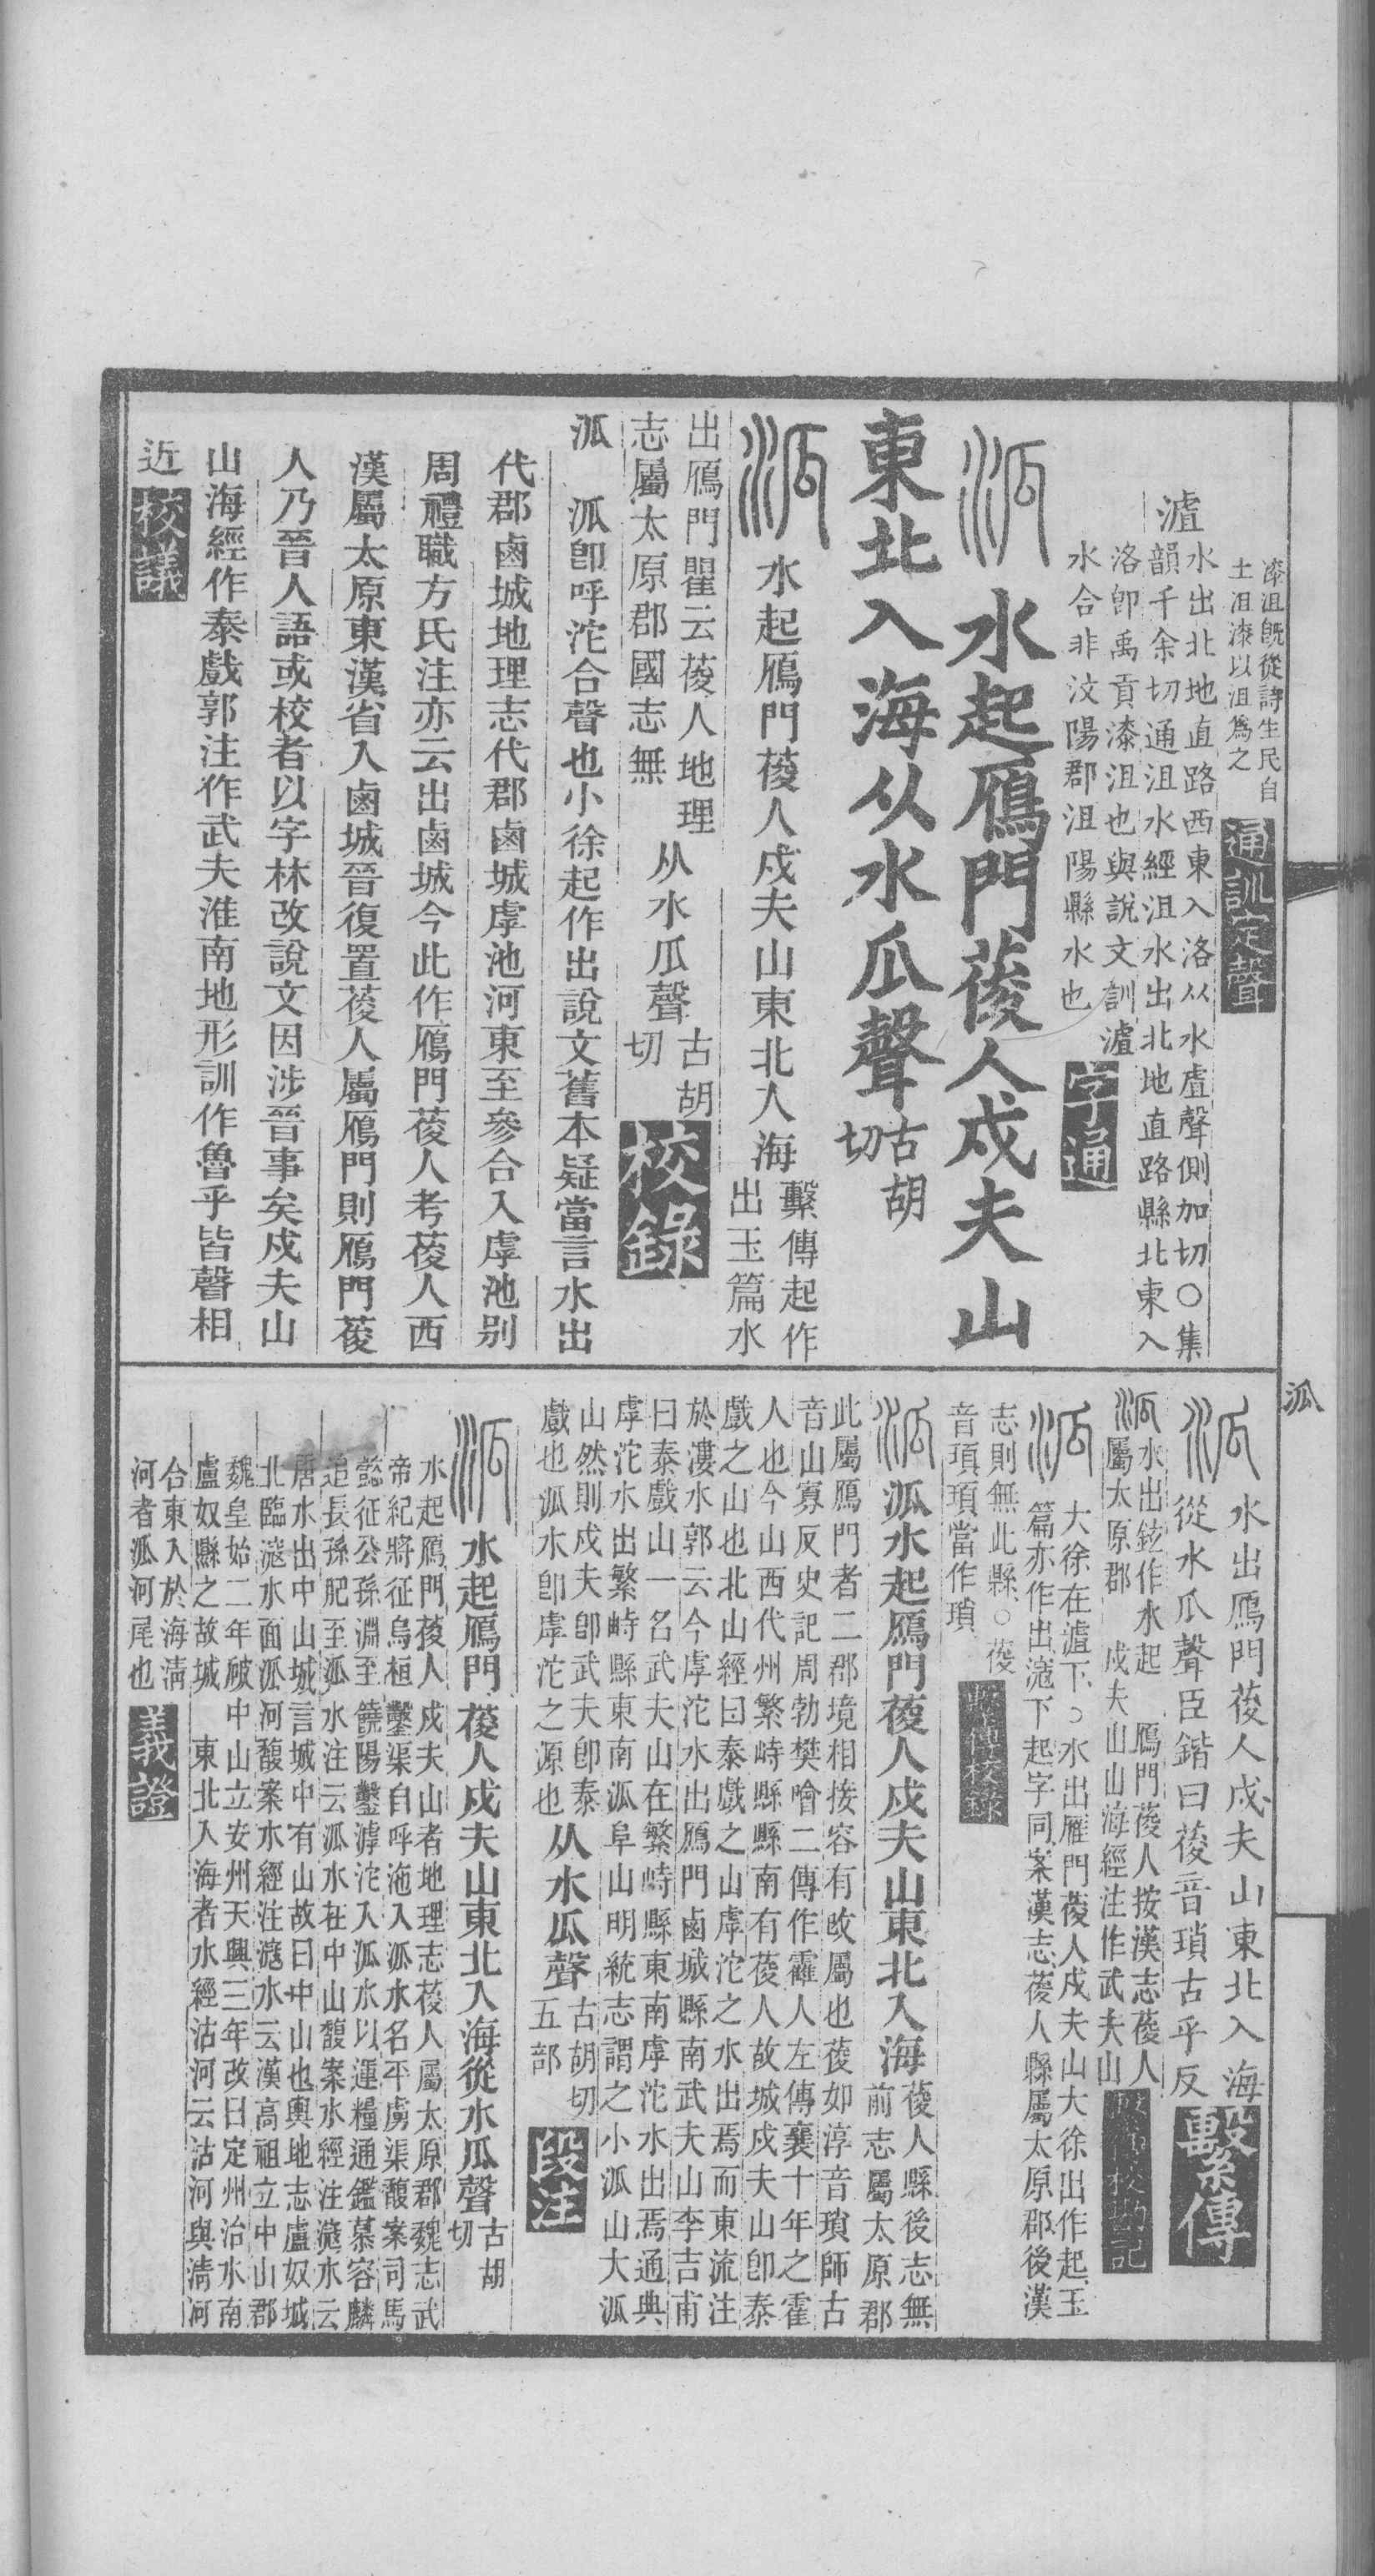 漆沮旣從詩生民自
土沮漆以沮爲之
通訓定聲
瀘
水出北地直路西東入洛从水虘聲側加切○集
韻千余切通沮水經沮水出北地直路縣北東入
洛卽禹貢漆沮也與說文訓瀘
水合非汶陽郡沮陽縣水也
字通
泒
水起鴈門葰人戍夫山
東北入海从水瓜聲
古胡
切
泒
水起鴈門葰人戍夫山東北入海
繫傳起作
出玉篇水
出鴈門瞿云葰人地理
志屬太原郡國志無
从水瓜聲
古胡
切
校錄
泒
泒卽呼沱合聲也小徐起作出說文舊本疑當言水出
代郡鹵城地理志代郡鹵城虖池河東至參合入虖池别
周禮職方氏注亦云出鹵城今此作鴈門葰人考葰人西
漢屬太原東漢省入鹵城晉復置葰人屬鴈門則鴈門葰
人乃晉人語或校者以字林改說文因涉晉事矣戍夫山
山海經作泰戲郭注作武夫淮南地形訓作魯乎皆聲相
近
校議
泒
泒
水出鴈門葰人戍夫山東北入海
從水瓜聲臣鍇曰葰音瑣古乎反
繫傳
泒
水出鉉作水起
鴈門葰人按漢志葰人
屬太原郡
戍夫山山海經注作武夫山
泒
大徐在瀘下○水出雁門葰人戍夫山大徐出作起玉
篇亦作出滱下起字同案漢志葰人縣屬太原郡後漢
志則無此縣○葰
音瑣瑣當作瑣
泒
泒水起鴈門葰人戍夫山東北入海
葰人縣後志無
前志屬太原郡
此屬鴈門者二郡境相接容有改屬也葰如淳音瑣師古
音山寡反史記周勃樊噲二傳作霍人左傳襄十年之霍
人也今山西代州繁峙縣縣南有葰人故城戍夫山卽泰
戲之山也北山經曰泰戲之山虖沱之水出焉而東流注
於漊水郭云今虖沱水出鴈門鹵城縣南武夫山李吉甫
曰泰戲山一名武夫山在繁峙縣東南虖沱水出焉通典
虖沱水出繁峙縣東南泒阜山明統志謂之小泒山大泒
山然則戍夫卽武夫卽泰
戲也泒水卽虖沱之源也
从水瓜聲
古胡切
五部
段注
泒
水起鴈門葰人戍夫山東北入海從水瓜聲
古胡
切
水起鴈門葰人戍夫山者地理志葰人屬太原郡魏志武
帝紀將征烏桓鑿渠自呼沲入泒水名平虜渠馥案司馬
懿征公孫淵至饒陽鑿滹沱入泒水以運糧通鑑慕容麟
追長孫肥至泒水注云泒水在中山馥案水經注滱水云
唐水出中山城言城中有山故曰中山也輿地志盧奴城
北臨滱水面泒河馥案水經注滱水云漢高祖立中山郡
魏皇始二年破中山立安州天興三年改曰定州治水南
盧奴縣之故城
東北入海者水經沽河云沽河與淸河
合東入於海淸
河者泒河尾也
義證